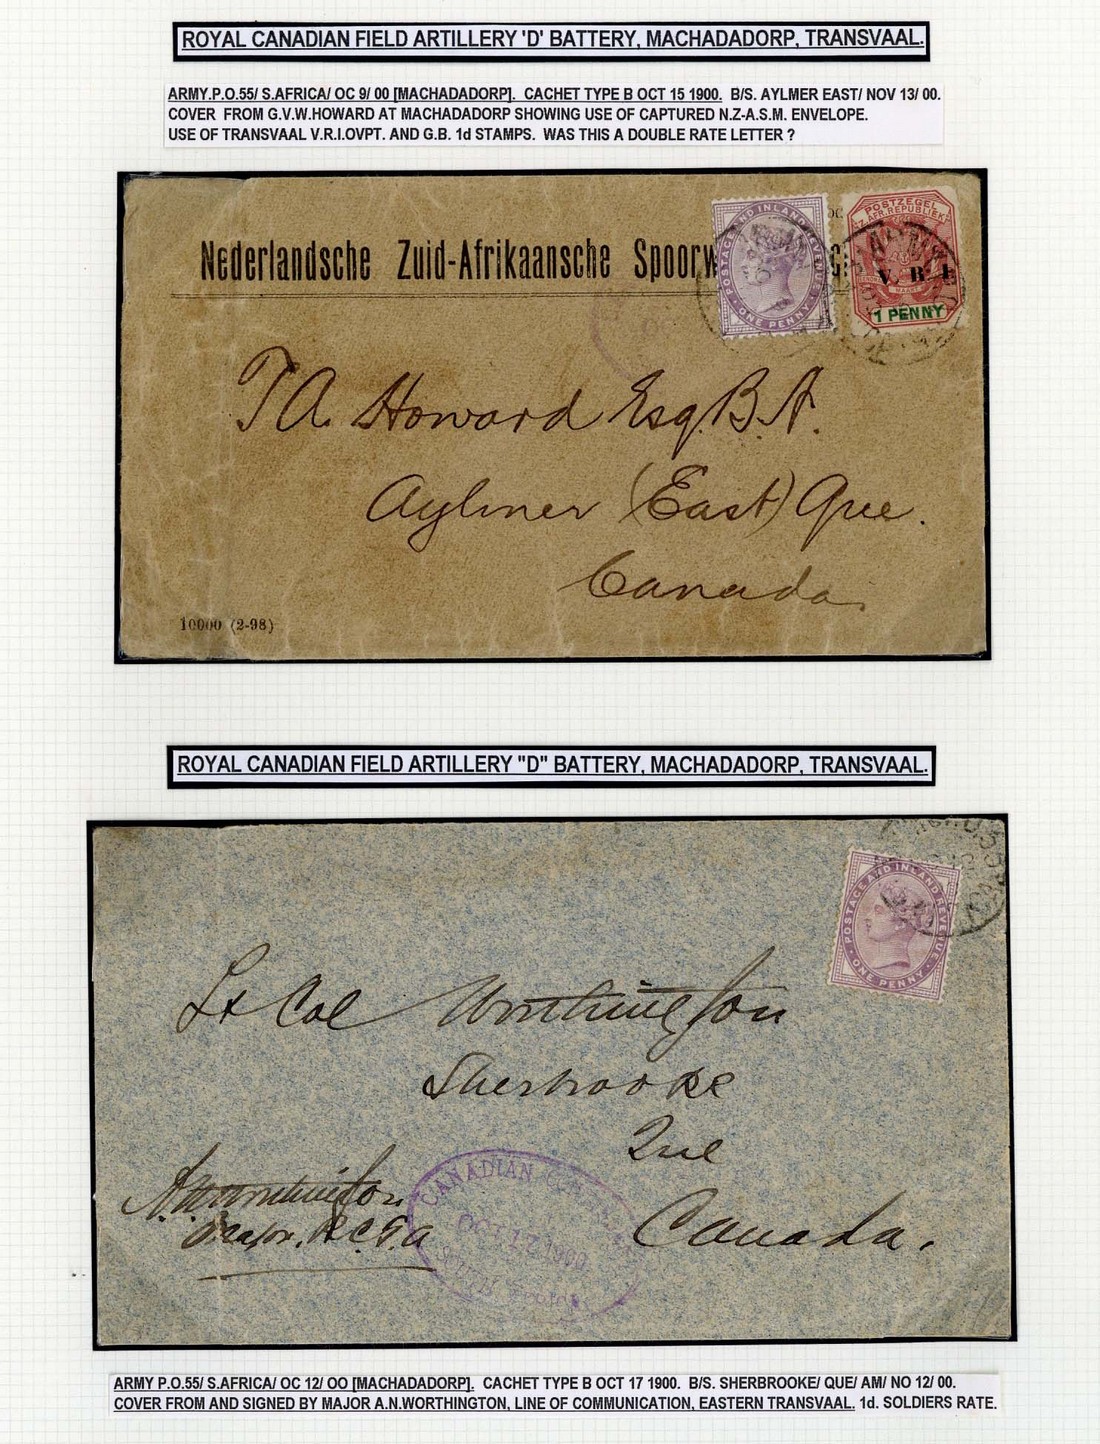 ROYAL CANADIAN FIELD ARTILLERY 'D' BATTERY, MACHADADORP, TRANSVAAL.
ARMY.P.O.55/ S.AFRICA/ OC 9/ 00 [MACHADADORP]. CACHET TYPE B OCT 15 1900. B/S. AYLMER EAST/ NOV 13/ 00.
COVER FROM G.V.W.HOWARD AT MACHADADORP SHOWING USE OF CAPTURED N.Z-A.S.M. ENVELOPE.
USE OF TRANSVAAL V.R.I.OVPT. AND G.B. 1d STAMPS. WAS THIS A DOUBLE RATE LETTER ?
POSTAGE AND INLAND REVENUE
ONE PENNY
POSTZEGEL
Z. AFR. REPUBLIEK
V. R. I
1 PENNY
Nederlandsche Zuid-Afrikaansche Spoorw
T A. Howard Esq. B. A.
Aylmer (East) Que.
Canada.
10000 (2-98)
ROYAL CANADIAN FIELD ARTILLERY "D" BATTERY, MACHADADORP, TRANSVAAL.
POSTAGE AND INLAND REVENUE
ONE PENNY
Lt Col Worthington
Sherbrooke
Que
Canada.
Worthington
Major. R.C.F.A
CANADIAN
OCT 17 1900
ARMY P.O.55/ S.AFRICA/ OC 12/ OO [MACHADADORP]. CACHET TYPE B OCT 17 1900. B/S. SHERBROOKE/ QUE/ AM/ NO 12/ 00.
COVER FROM AND SIGNED BY MAJOR A.N.WORTHINGTON, LINE OF COMMUNICATION, EASTERN TRANSVAAL. 1d. SOLDIERS RATE.